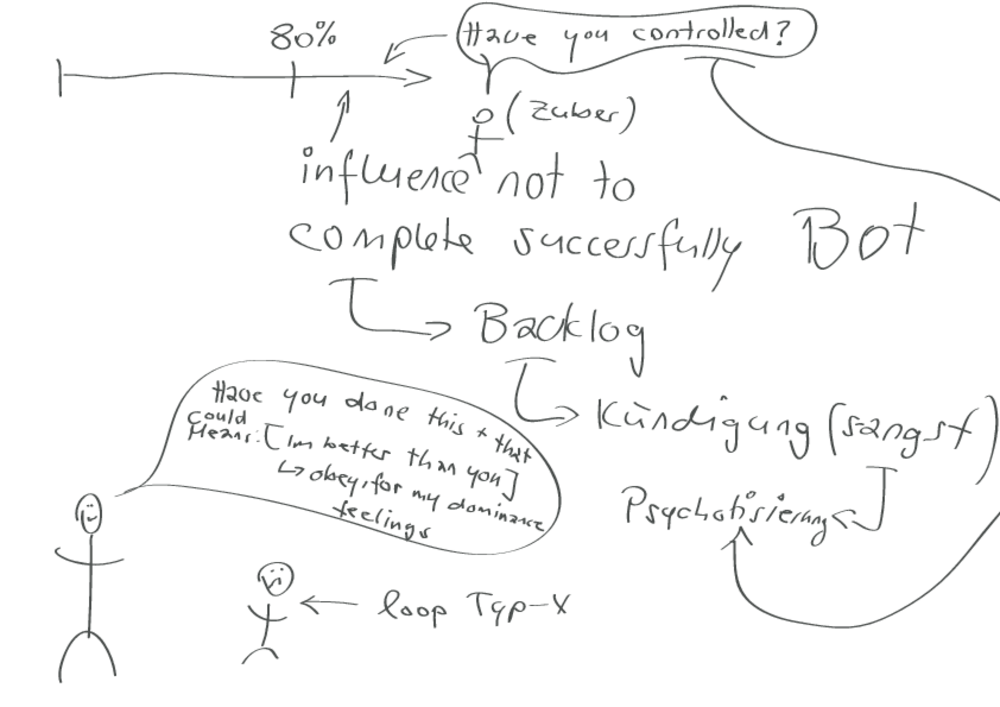 80%
Have you controlled?
(Zuber)
influence not to
complete successfully
Bot
Backlog
Kündigung (sangst)
Psychotisierung
Have you done this + that
could
Means: [Im better than you]
↳ obey, for my dominance
feelings
loop Typ-X